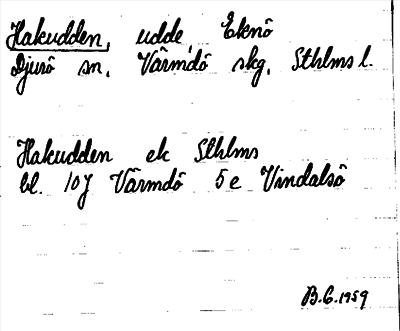 Hakudden, udde, Eknö
Djurö sn, Värmdö skg, Sthlms l.
Hakudden ek Sthlms
bl. 10J Värmdö 5 e Vindalsö
B.G. 1959